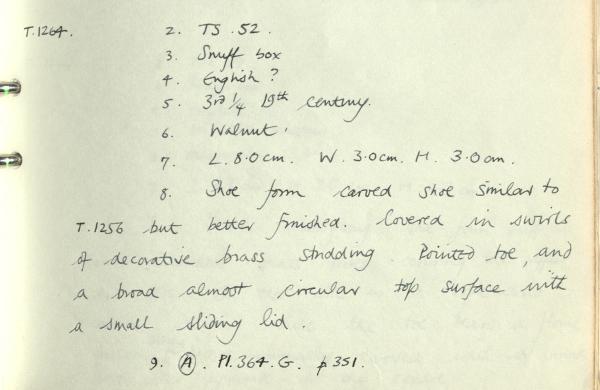 T.1264. 2. TS .52.
3. Snuff box
4. English ?
5. 3rd 1/4 19th century.
6. Walnut.
7. L. 8.0cm. W. 3.0cm. H. 3.0cm.
8. Shoe form carved shoe similar to
T.1256 but better finished. Covered in swirls
of decorative brass studding. Pointed toe, and
a broad almost circular top surface with
a small sliding lid.
9. (A). Pl. 364. G. p351.